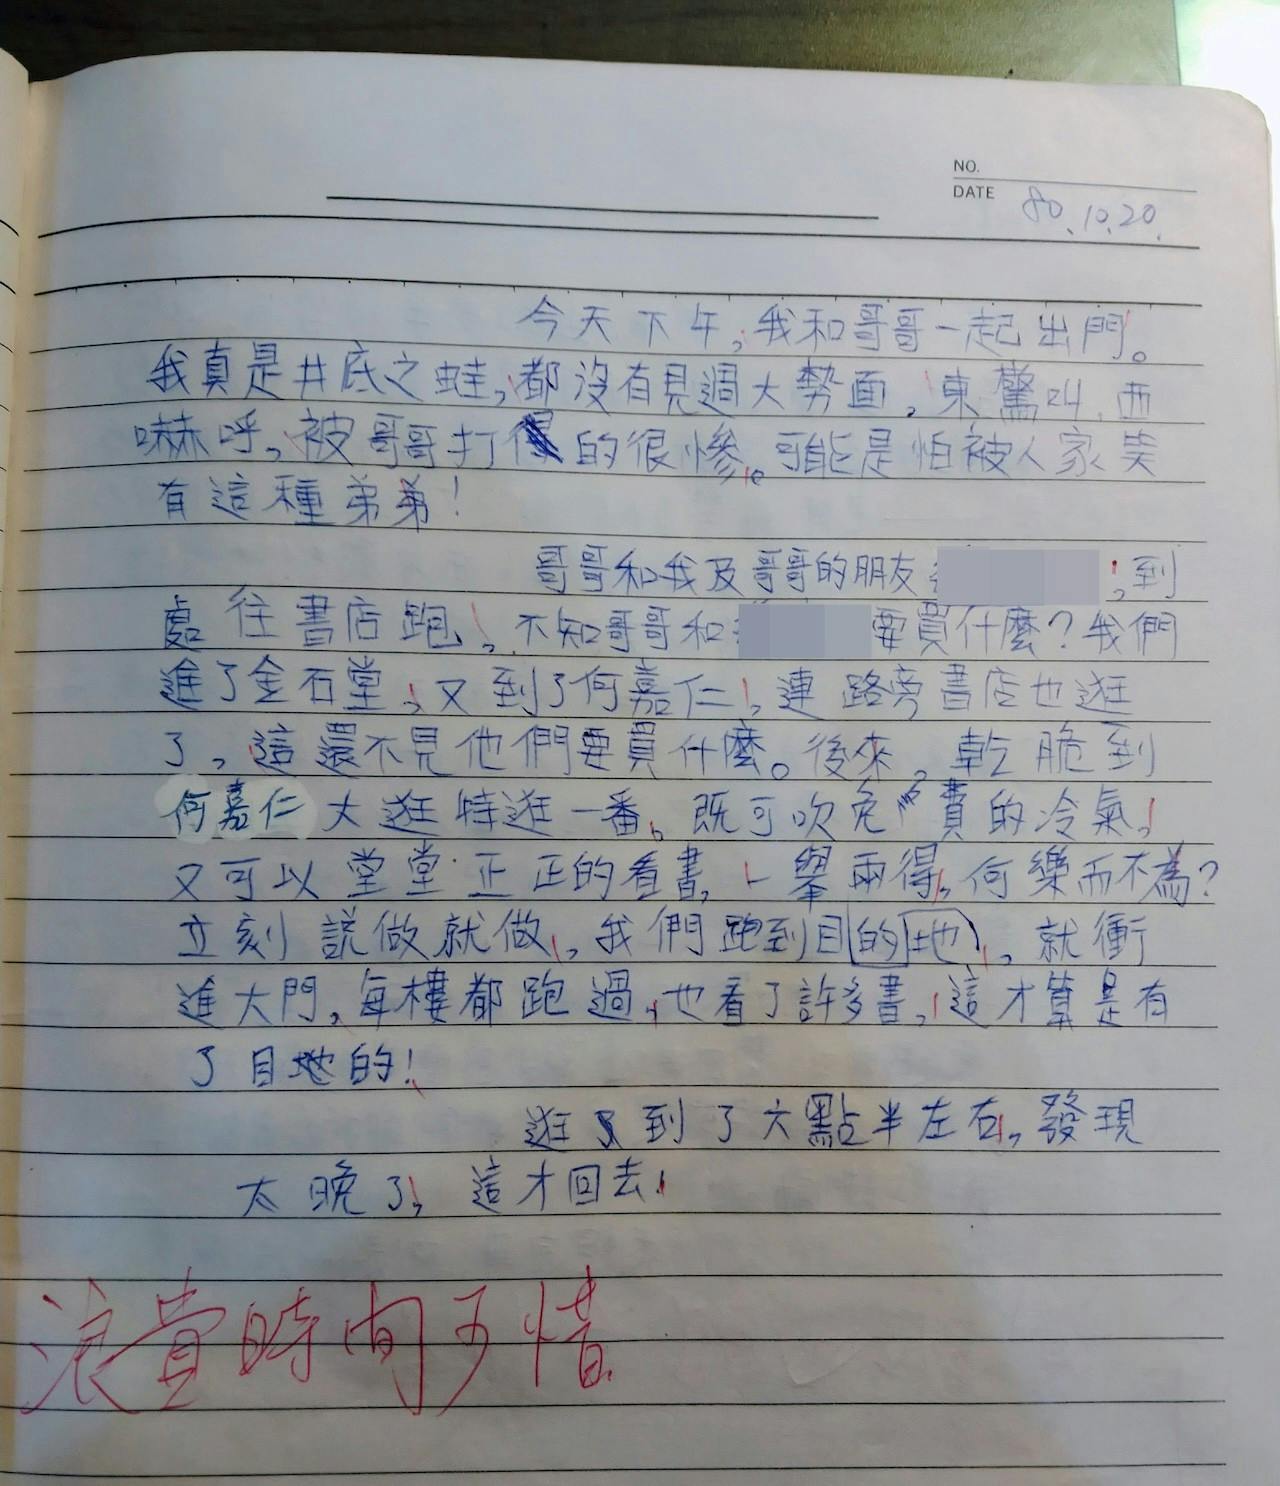 NO.
DATE 80.10.20.
今天下午,我和哥哥一起出門。
我真是井底之蛙,都沒有見過大勢面,東驚叫,西
嚇呼,被哥哥打的很慘。可能是怕被人家笑
有這種弟弟!
哥哥和我及哥哥的朋友,到
處往書店跑,不知哥哥和要買什麼?我們
進了金石堂,又到了何嘉仁,連路旁書店也逛
了,這還不見他們要買什麼。後來,乾脆到
何嘉仁大逛特逛一番。既可吹免費的冷氣,
又可以堂堂正正的看書,一舉兩得,何樂而不為?
立刻說做就做,我們跑到目的地,就衝
進大門,每樓都跑過,也看了許多書,這才算是有
了目地的!
逛到了六點半左右,發現
太晚了,這才回去!
浪費時間可惜